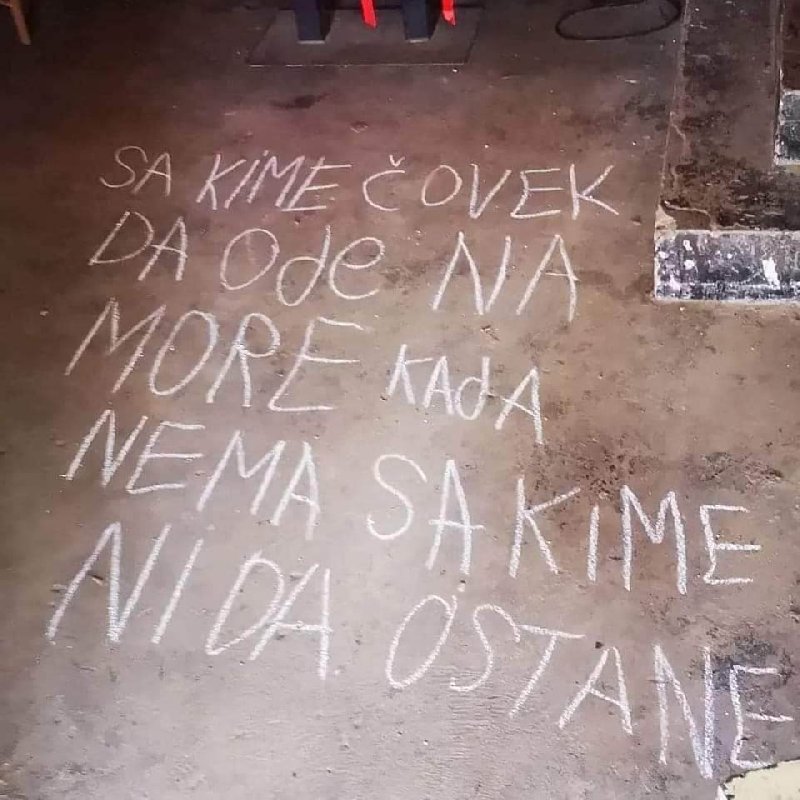 SA KIME ČOVEK
DA Ode NA
MORE KAdA
NEMA SA KIME
NI DA OSTANE